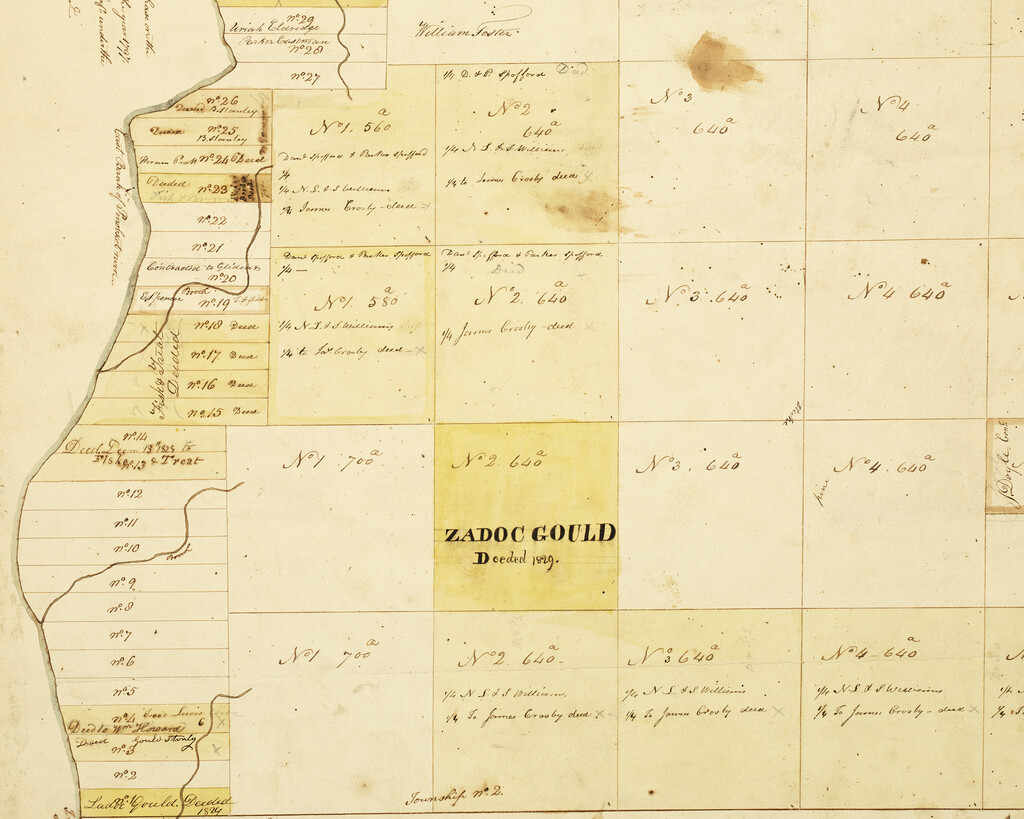 Nº 29
Uriah Eldridge
Parker Eastman
Nº 28
Nº 27
Nº 26
Deeded B. Stanley
Deeded Nº 25
B. Stanley
Nº 24 Deed
Deeded
Nº 23
Nº 22
Nº 21
Contracted to Glidden
Nº 20
E. Spencer Brook
Nº 19
Nº 18 Deed
Nº 17 Deed
Nº 16 Deed
Nº 15 Deed
Fisk & Treat
Deeded
Nº 14
Nº 13
Fiske & Treat
Nº 12
Nº 11
Nº 10
Brook
Nº 9
Nº 8
Nº 7
Nº 6
Nº 5
Nº 4
Deed to Wm Howard
6
Deed Gould
Nº 3
Nº 2
Gould Deeded
1829
East Bank of Penobscot river
William Foster
Nº 1. 560 a
Danl Spofford & Parker Spofford
1/4
1/4 N. L. & S Williams
1/2 James Crosby - deed x
1/4 D. & P. Spofford Deed
Nº 2
640 a
1/4 N L. & S Williams
1/2 to James Crosby deed x
Nº 3
640 a
Nº 4
640 a
Danl Spofford & Parker Spofford
1/4 -
Nº 1. 580 a
1/4 N. L & S Williams
1/4 to Jas Crosby deed - x
Danl Spofford & Parker Spofford
1/4 Deed
Nº 2. 640 a
1/4 James Crosby - deed x
Nº 3. 640 a
Nº 4 640 a
Nº 1 700 a
Nº 2. 640 a
ZADOC GOULD
Deeded 1829.
Nº 3. 640 a
Nº 4. 640 a
pine
Nº 1 700 a
Nº 2. 640 a
1/4 N L. & S Williams
1/4 To James Crosby deed x
Nº 3 640 a
1/4 N L & S Williams
1/4 To James Crosby deed x
Nº 4 640 a
1/4 N L. & S Williams
1/4 To James Crosby - deed x
Township Nº 2.